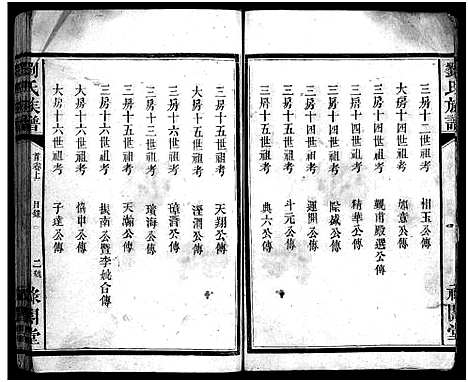 劉氏族譜
三房十二世祖考 相玉公傳
三房十四世祖考 如意公傳
三房十四世祖考 覲甫殿選公傳
三房十四世祖考 精華公傳
三房十四世祖考 歐威公傳
三房十四世祖考 運開公傳
三房十四世祖考 斗元公傳
三房十五世祖考 典六公傳
三房十五世祖考 天翔公傳
三房十五世祖考 溼潤公傳
三房十五世祖考 璋清公傳
三房十三世祖考 璸海公傳
三房十五世祖考 天瀚公傳
三房十六世祖考 振南公暨李姚合傳
大房十六世祖考 倍申公傳
大房十六世祖考 子達公傳
劉氏族譜 首卷上 目錄 二號